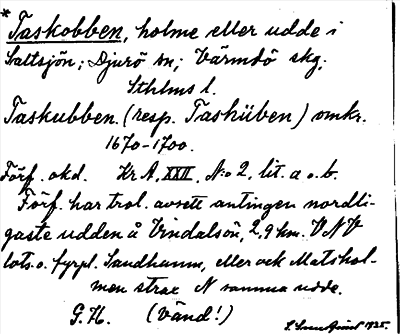 * Taskobben, holme eller udde i
Saltsjön; Djurö sn; Värmdö skg;
Sthlms l.
Taskubben (resp. Tasküben) omkr.
1670-1700.
Förf. okd. Kr A, XXII, No 2, lit. a o. b.
Förf. har trol. avsett antingen nordli-
gaste udden å Vindalsön, 2,9 km. VNV
lots- o. fyrpl. Sandhamn, eller ock Matshol-
men strax N samma udde.
G. H. (Vänd!)
1925.